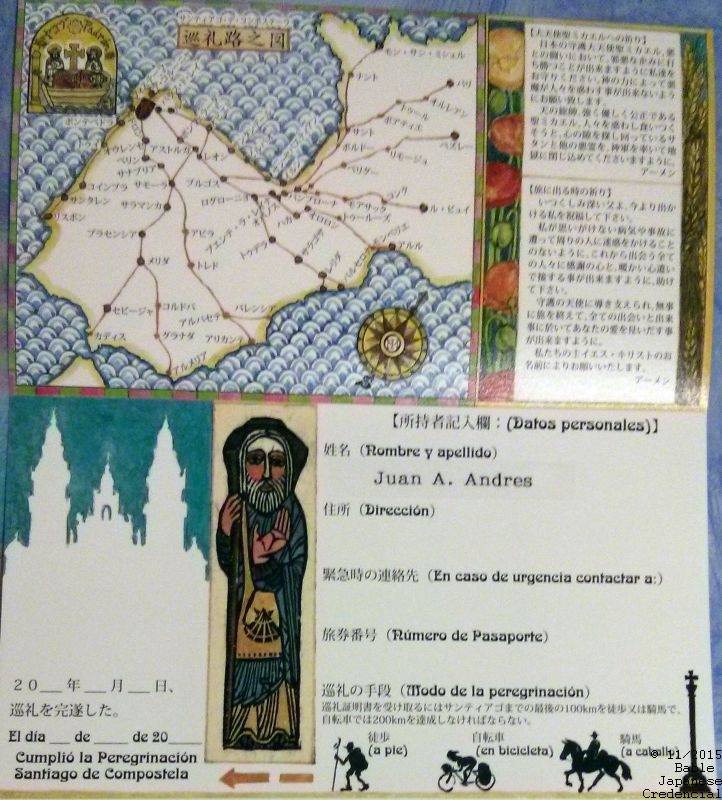 巡礼路之図
モン・サン・ミシェル
ナント
パリ
オルレアン
トゥール
ポアティエ
ベズレー
サント
ボルドー
リモージュ
ペリグー
コンク
ル・ピュイ
モアサック
トゥールーズ
モンペリエ
アルル
オロロン
ハカ
パンプローナ
プエンテ・ラ・レイナ
ログローニョ
ブルゴス
レオン
アストルガ
ポンテベドラ
オウレンセ
ベリン
サナブリア
サモーラ
サラマンカ
コインブラ
サンタレン
リスボン
プラセンシア
アビラ
メリダ
トレド
トゥデラ
サラゴサ
レリダ
バルセロナ
セビージャ
コルドバ
バレンシア
アルバセテ
カディス
グラナダ
アリカンテ
アルメリア
【大天使聖ミカエルへの祈り】
日本の守護大天使聖ミカエル、悪
との闘いにおいて、邪悪な企みに打
ち勝つことが出来ますように私達を
お守りください。神の力によって悪
魔が人々を惑わす事が出来ないよう
にお願い致します。
天の総帥、強く優しく公正である
聖ミカエル、人々を惑わし食いつく
そうと、心の隙を探し回っているサ
タンと他の悪霊を、神軍を率いて地
獄に閉じ込めてくださいますように。
アーメン
【旅に出る時の祈り】
いつくしみ深い父よ、今より出か
ける私を祝福して下さい。
私が思いがけない病気や事故に
遭って周りの人に迷惑をかけること
のないように、これから出会う全て
の人々に感謝の心と、暖かい心遣い
で接する事が出来ますように、助け
て下さい。
守護の天使に導き支えられ、無事
に旅を終えて、全ての出会いと出来
事に於いてあなたの愛を見いだす事
が出来ますように。
私たちの主イエス・キリストのお
名前によりお願いいたします。
アーメン
【所持者記入欄：(Datos personales)】
姓名（Nombre y apellido）
Juan A. Andres
住所（Dirección）
緊急時の連絡先（En caso de urgencia contactar a:）
旅券番号（Número de Pasaporte）
巡礼の手段（Modo de la peregrinación）
巡礼証明書を受け取るにはサンティアゴまでの最後の100kmを徒歩又は騎馬で、
自転車では200kmを達成しなければならない。
徒歩 自転車 騎馬
(a pie) (en bicicleta) (a caballo)
２０___ 年 ___ 月 ___ 日、
巡礼を完遂した。
El día ___ de _____ de 20_____
Cumplió la Peregrinación
Santiago de Compostela
© 11/2015
Japanese
Credencial